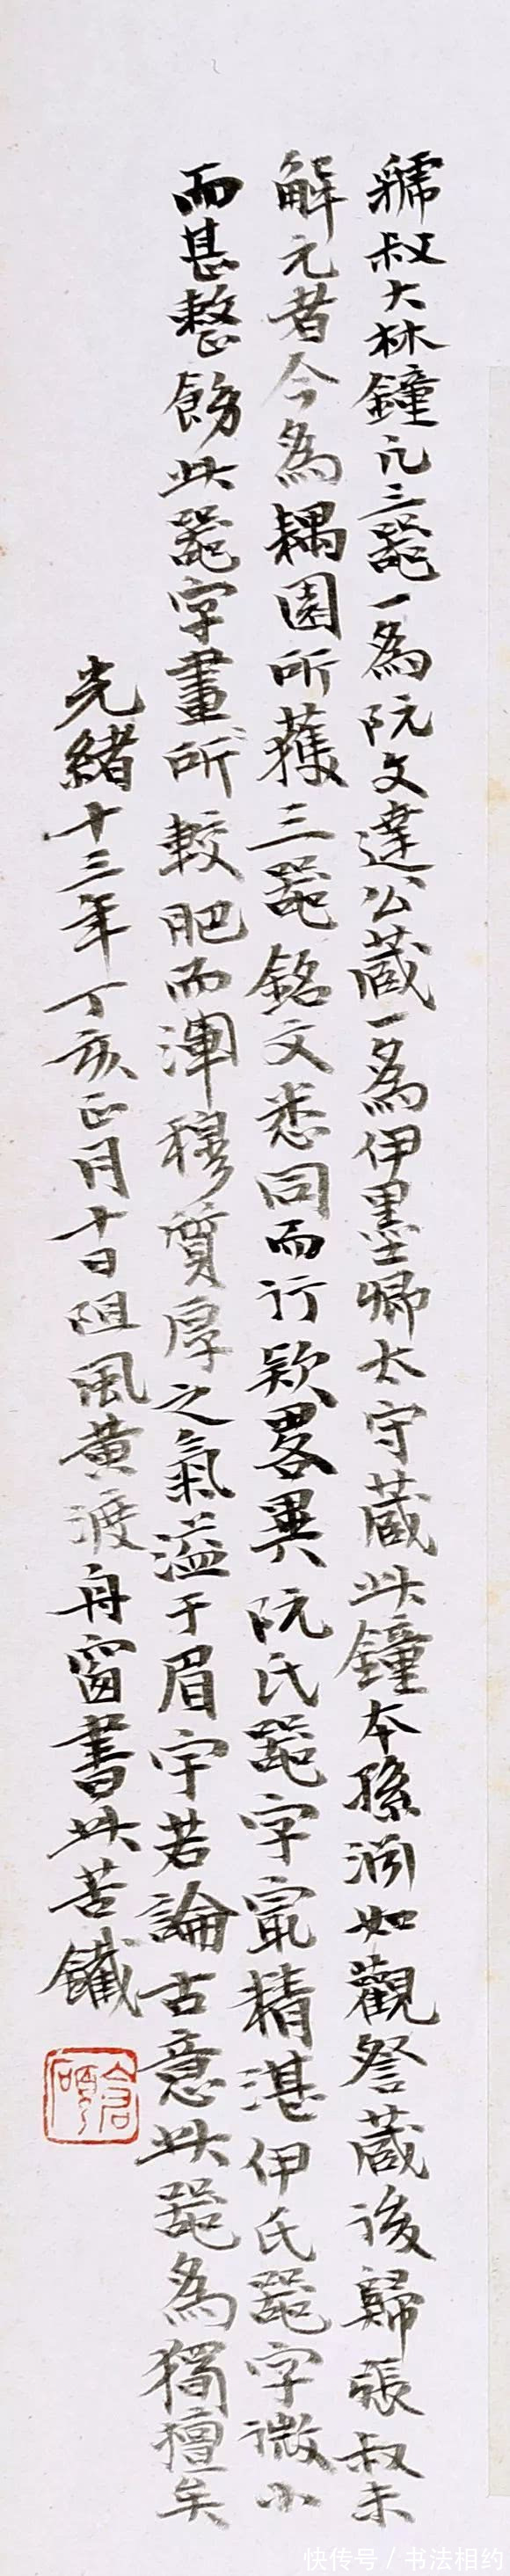 虢叔大林鐘凡三器一為阮文達公蔵一為伊墨卿太守蔵此鐘本孫淵如觀詧蔵後歸張叔未
解元者今為耦園所獲三器銘文悉同而行款畧異阮氏器字寔精湛伊氏器字微小
而甚整飭此器字畫所較肥而渾穆質厚之氣溢于眉宇若論古意此器為獨擅矣
光緒十三年丁亥正月十日阻風黄渡舟窗書此苦鐵
倉碩
快传号 / 书法相约